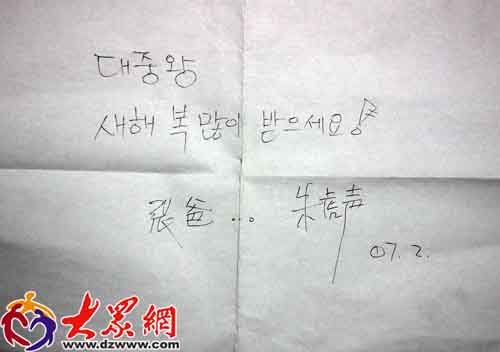 대중왕
새해 복 많이 받으세요
張爸... 朱 声
07. 2.
大眾網
www.dzwww.com